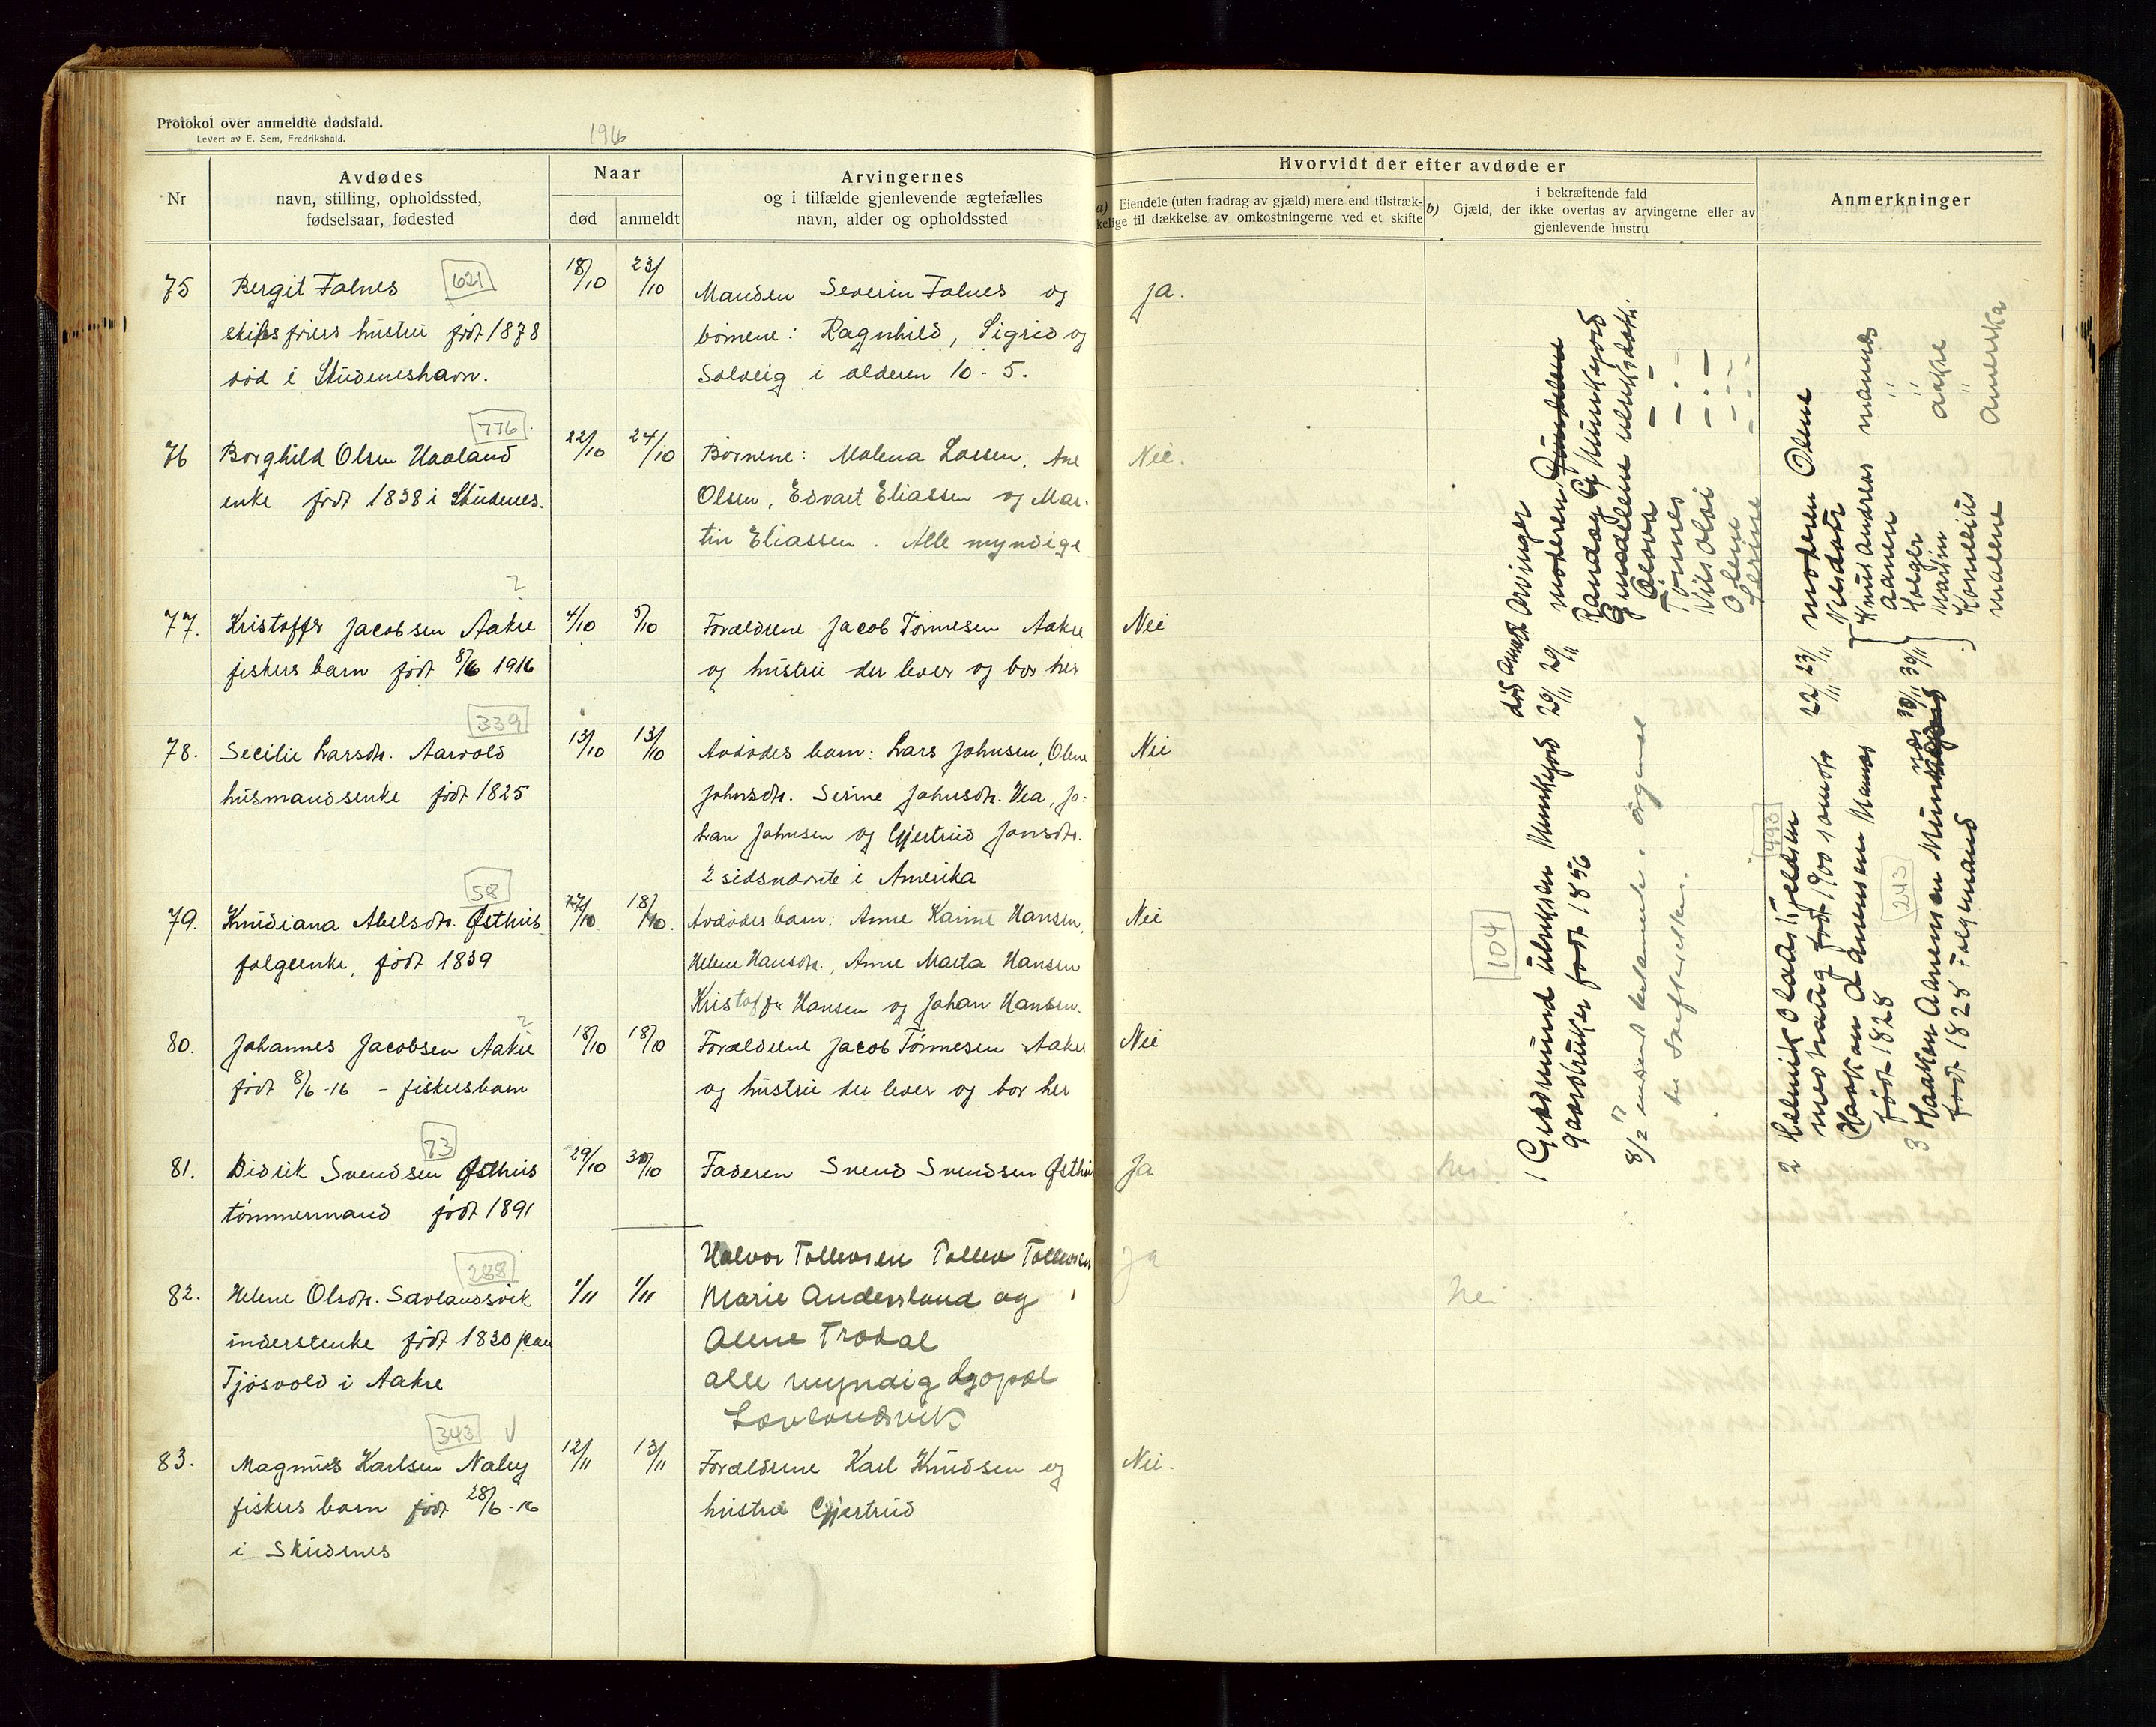 Protokol over anmeldte dødsfald.
Levert av E. Sem, Fredrikshald.
1916
Nr
Avdødes
navn, stilling, opholdssted,
fødselsaar, fødested
Naar
død
anmeldt
Arvingernes
og i tilfælde gjenlevende ægtefælles
navn, alder og opholdssted
Hvorvidt der efter avdøde er
a) Eiendele (uten fradrag av gjæld) mere end tilstræk-
kelige til dækkelse av omkostningerne ved et skifte
i bekræftende fald
b) Gjæld, der ikke overtas av arvingerne eller av
gjenlevende hustru
Anmerkninger
75 Bergit Falnes 621 18/10 23/10 Manden Severin Falnes og ja.
skibsførers hustru født 1878 børnene: Ragnhild, Sigrid og
død i Skudeneshavn. Solveig i alderen 10-5.
776
76 Borghild Olsen Haaland 22/10 24/10 Børnene: Malena Larsen, Ane Nei.
enke født 1838 i Skudenes. Olsen, Edvart Eliassen og Mar-
tin Eliassen. Alle myndige
?
77. Kristoffer Jacobsen Aakre 4/10 5/10 Forældrene Jacob Tønnesen Aakre Nei
fiskers barn født 8/6 1916 og hustru der lever og bor her
339
78. Secilie Larsdtr. Aarvold 13/10 13/10 Avdødes barn: Lars Johnsen, Olene Nei
husmandsenke født 1825 Johnsdtr. Serine Johnsdtr. Vea, Jo-
han Johnsen og Gjertrud Jonsdtr.
2 sidsnævnte i Amerika
58
79. Knudiana Abelsdtr. Østhus 17/10 18/10. Avdødes barn: Anne Karine Hansen, Nei
følgeenke, født 1839 Helene Hansdtr., Anne Marta Hansen
Kristoffer Hansen og Johan Hansen.
?
80. Johannes Jacobsen Aakre 18/10 18/10 Forældrene Jacob Tønnesen Aakre Nei
født 8/6-16 - fiskersbarn og hustru der lever og bor her
73
81. Didrik Svendsen Østhus 29/10 30/10 Faderen Svend Svendsen Østhus Ja nei
tømmermand født 1891
Halvor Tollevsen Tollev Tollevsen ja
288
82. Helene Olsdtr. Sævlandsvik 1/11 1/11 Marie Andersland og nei
inderstenke født 1830 paa Olene Trodal
Tjøsvold i Aakre alle myndig
Sævlandsvik
343
83. Magnus Karlsen Naley 12/11 13/11 Forældrene Karl Knudsen og Nei.
fiskers barn født 28/6-16 hustru Gjertrud
i Skudenes
104
død anmelt arvinger
1 Gudmund Ulriksen Munkejord 20/11 20/11 moderen
gaardbruker født 1856
Olava
Tønnes
Nils Olai
Olene
Serine
493
2 Helmik Olaas Tjeldsen 22/11 23/11 moderen Olene
med haug født 1900
243
Haakon Aanensen Mannes
født 1828
Knut Andreas Mannes
Aanen
Holger
Martin
Kornelius
Malene Amerika
3 Haakon Aanensen 30/11 30/11
født 1828 Følgmand